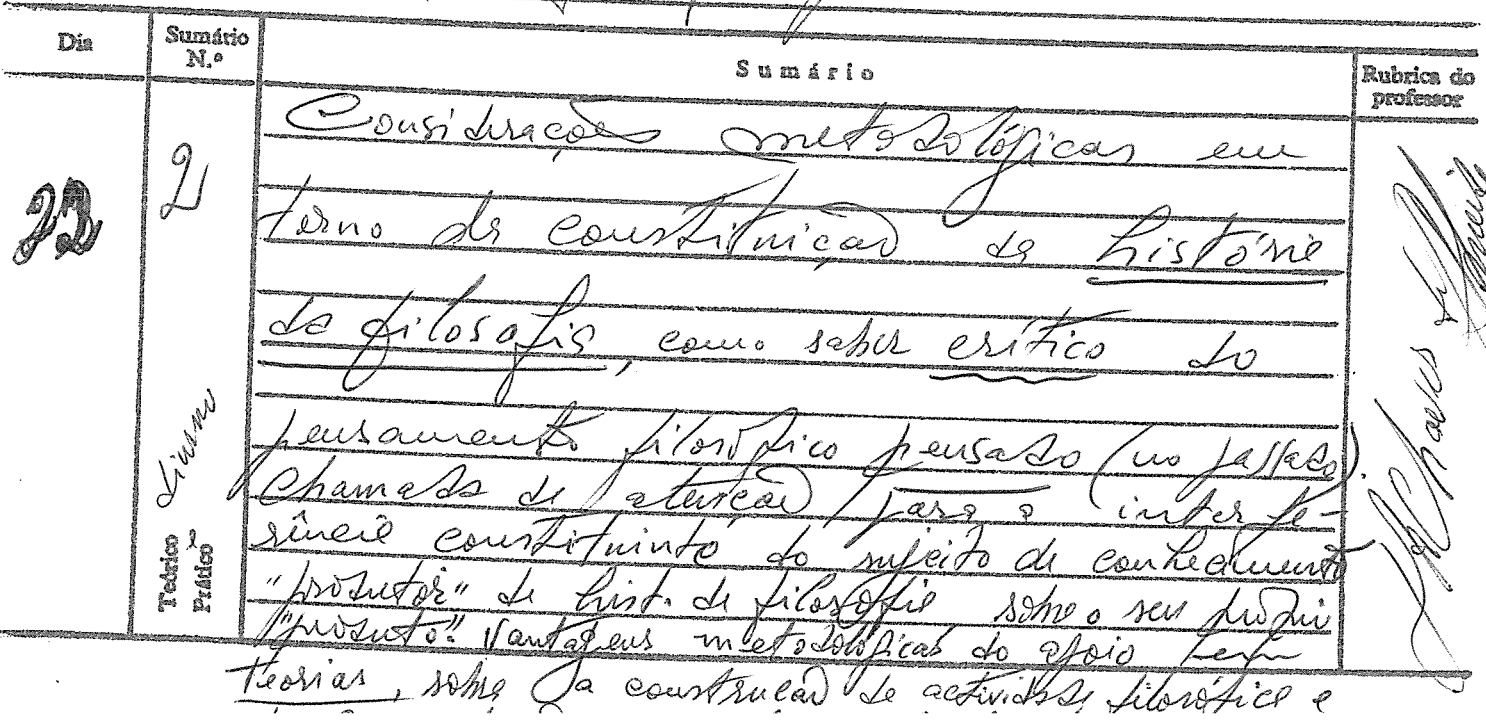 Dia
Sumário N.º
Sumário
Rubrica do professor
22
2
Considerações metodológicas em
torno da constituição da história
da filosofia, como saber crítico do
pensamento filosófico pensado (no passado).
Chamada de atenção para a interfe-
rência constituinte do sujeito de conhecimento
"produtor" de hist. da filosofia, sobre o seu próprio
"produto". Vantagens metodológicas do apoio
teorias, sobre a construção da actividade filosófica e
Teórico e Prático
diurno